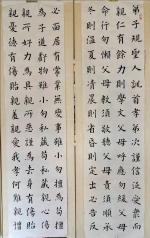 弟子規聖人訓首孝弟次謹信泛愛眾而
親仁有餘力則學文父母呼應勿緩父母
命行勿懶父母教須敬聽父母責須順承
冬則溫夏則凊晨則省昏則定出必告反
必面居有常業無變事雖小勿擅為苟擅
為子道虧物雖小勿私藏苟私藏親心傷
親所好力為具親所惡謹為去身有傷貽
親憂德有傷貽親羞親愛我孝何難親憎